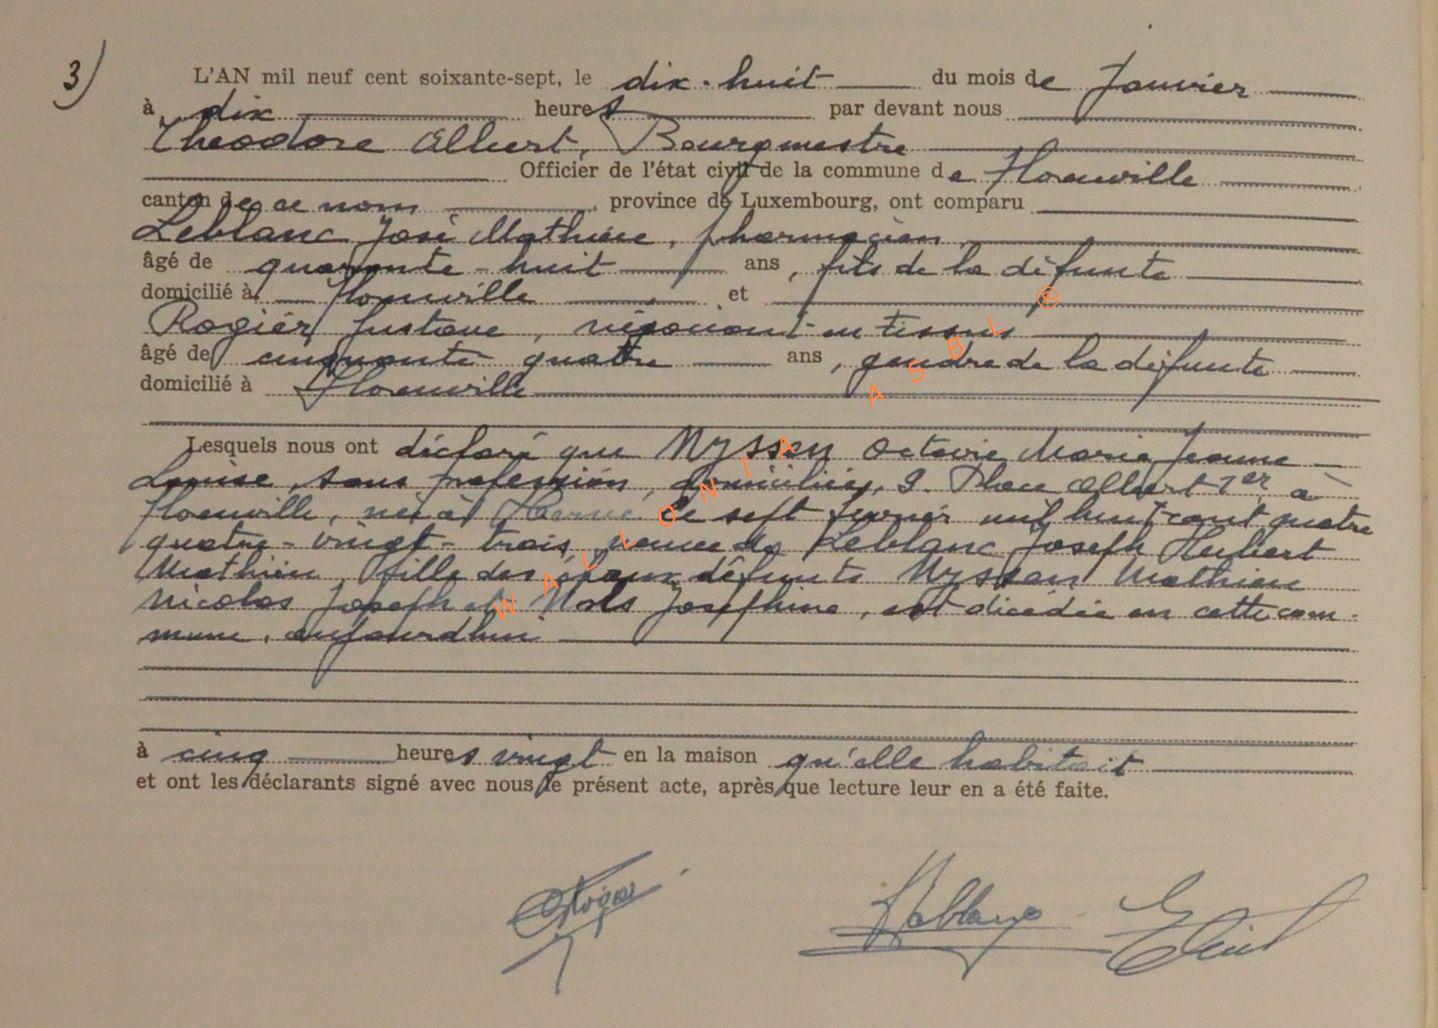 3)
L'AN mil neuf cent soixante-sept, le dix-huit du mois de Janvier
à dix heures par devant nous
Théodore Albert, Bourgmestre
Officier de l'état civil de la commune de Florenville
canton de ce nom, province de Luxembourg, ont comparu
Leblanc José Mathieu, pharmacien,
âgé de quarante-huit ans, fils de la défunte
domicilié à Florenville et
Rogier Gustave, négociant en tissus
âgé de cinquante quatre ans, gendre de la défunte
domicilié à Florenville
Lesquels nous ont déclaré que Nyssen Octavie Marie Jeanne
Louise, sans profession, domiciliée, 9. Place Albert 1er, à
Florenville, née à Herve le sept février mil huit cent quatre
quatre-vingt-trois, veuve de Leblanc Joseph Hubert
Mathieu, fille des époux défunts Nyssen Mathieu
Nicolas Joseph et Nols Joséphine, est décédée en cette com-
mune, aujourd'hui
à cinq heures vingt en la maison qu'elle habitait
et ont les déclarants signé avec nous le présent acte, après que lecture leur en a été faite.
Leblanc
WALLONIA ASBL ®